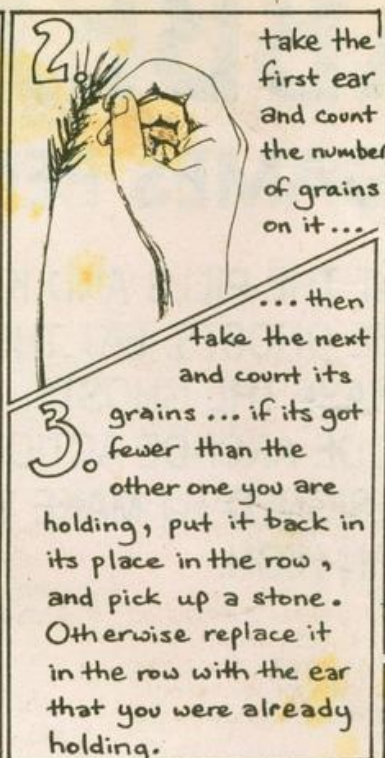 2.
take the
first ear
and count
the number
of grains
on it...
...then
take the next
and count its
3. grains ... if its got
fewer than the
other one you are
holding, put it back in
its place in the row,
and pick up a stone.
Otherwise replace it
in the row with the ear
that you were already
holding.